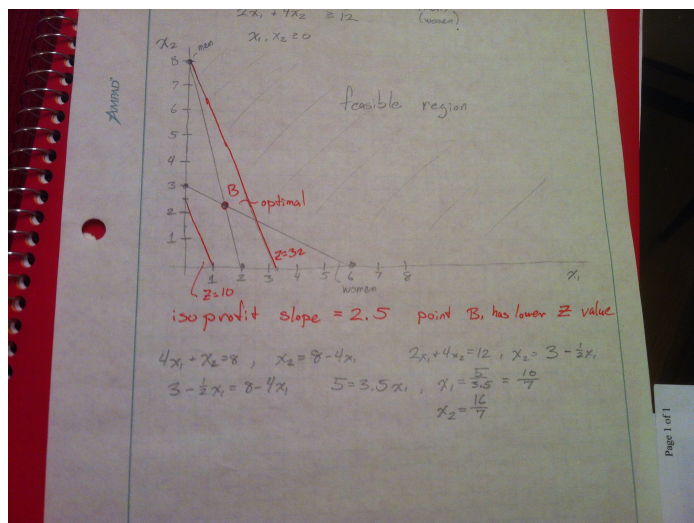 2x₁ + 4x₂ ≥ 12
(women)
x₁, x₂ ≥ 0
x₂
men
8
7
6
5
4
3
2
1
feasible region
B
optimal
Z=32
1 2 3 4 5 6 7 8
x₁
Z=10
women
isoprofit slope = 2.5 point B, has lower Z value
4x₁ + x₂ = 8 , x₂ = 8 - 4x₁ 2x₁ + 4x₂ = 12 , x₂ = 3 - ½x₁
3 - ½x₁ = 8 - 4x₁ 5 = 3.5x₁ , x₁ = 5/3.5 = 10/7
x₂ = 16/7
AMPAD
Page 1 of 1